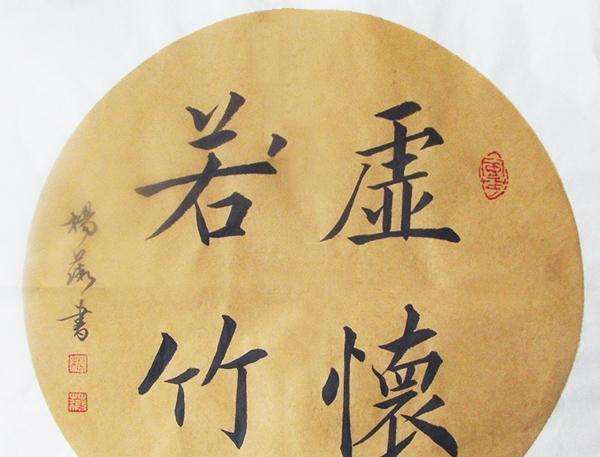 虛懷
若竹
楊薇書